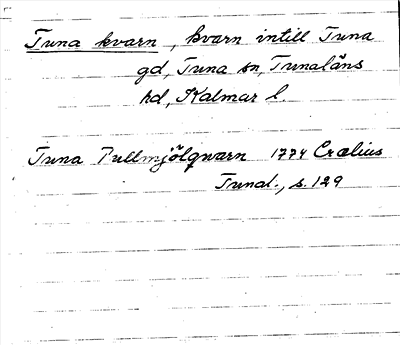 Tuna kvarn, kvarn intill Tuna
gd, Tuna sn, Tunaläns
hd, Kalmar l.
Tuna Pullmjölqwarn 1774 Crælius
Tunal., s. 129